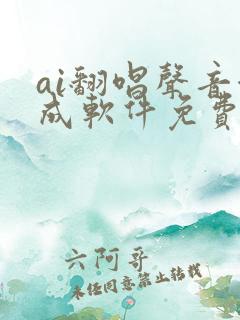 ai翻唱聲音
成軟件免費
六阿哥
未经同意禁止转载